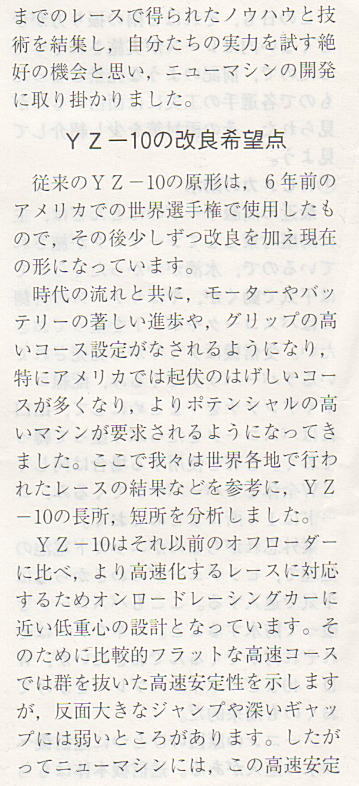 までのレースで得られたノウハウと技
術を結集し，自分たちの実力を試す絶
好の機会と思い，ニューマシンの開発
に取り掛かりました。
ＹＺ－10の改良希望点
従来のＹＺ－10の原形は，６年前の
アメリカでの世界選手権で使用したも
ので，その後少しずつ改良を加え現在
の形になっています。
時代の流れと共に，モーターやバッ
テリーの著しい進歩や，グリップの高
いコース設定がなされるようになり，
特にアメリカでは起伏のはげしいコー
スが多くなり，よりポテンシャルの高
いマシンが要求されるようになってき
ました。ここで我々は世界各地で行わ
れたレースの結果などを参考に，ＹＺ
－10の長所，短所を分析しました。
ＹＺ－10はそれ以前のオフローダー
に比べ，より高速化するレースに対応
するためオンロードレーシングカーに
近い低重心の設計となっています。そ
のために比較的フラットな高速コース
では群を抜いた高速安定性を示します
が，反面大きなジャンプや深いギャッ
プには弱いところがあります。したが
ってニューマシンには，この高速安定